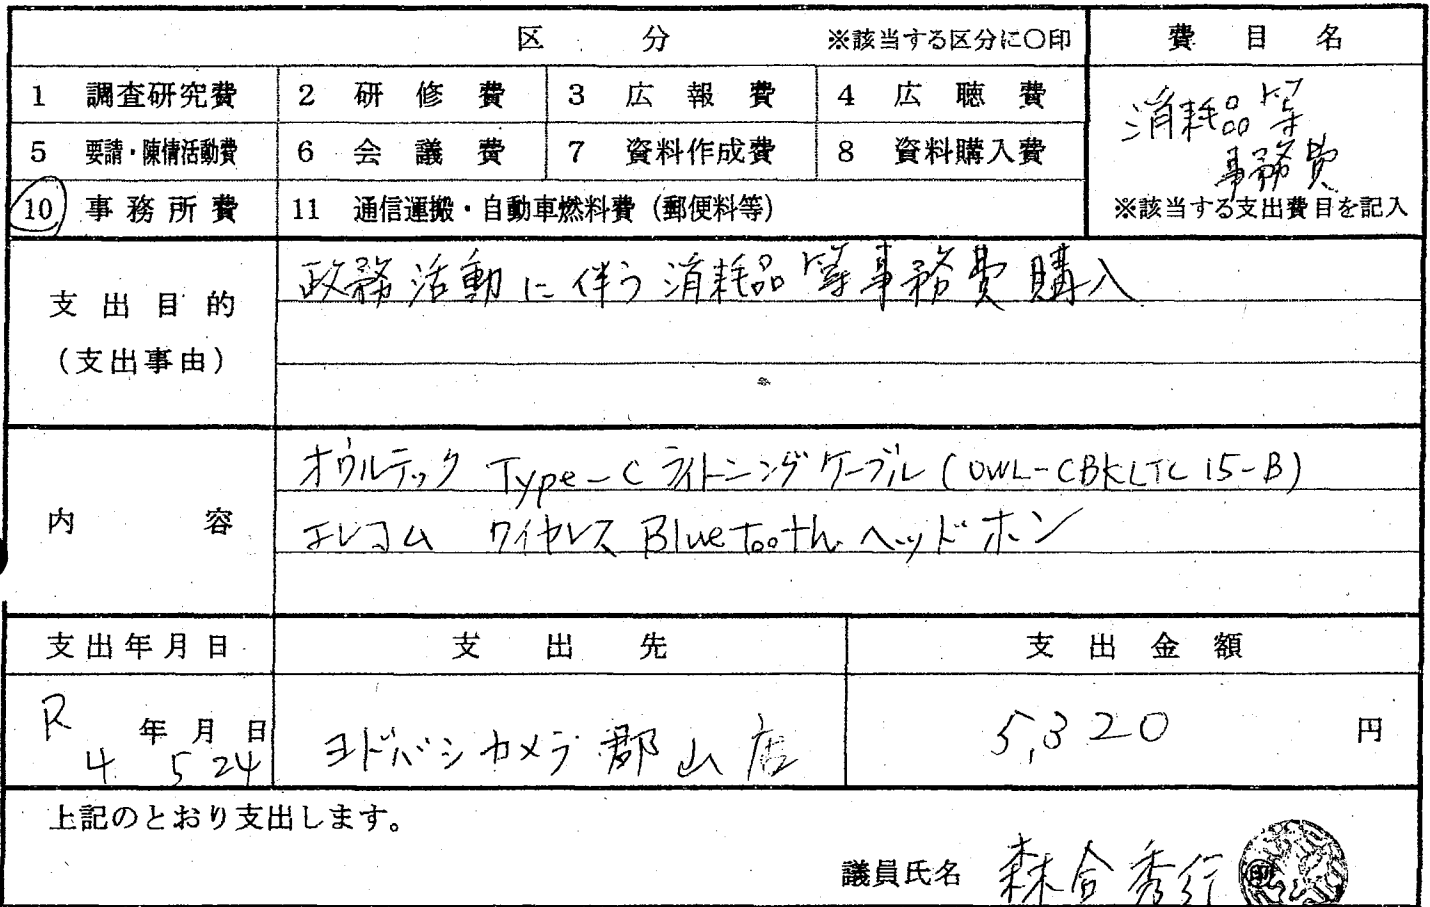 区 分 ※該当する区分に○印 費目名
1 調査研究費 2 研修費 3 広報費 4 広聴費
消耗品等
5 要請・陳情活動費 6 会議費 7 資料作成費 8 資料購入費
事務費
10 事務所費 11 通信運搬・自動車燃料費（郵便料等） ※該当する支出費目を記入
支出目的
（支出事由）
政務活動に伴う消耗品等事務費購入
内容
オウルテック Type-C ライトニングケーブル (OWL-CBKLTC15-B)
エレコム ワイヤレス Bluetooth ヘッドホン
支出年月日 支出先 支出金額
R 4年 5月 24日 ヨドバシカメラ郡山店 5,320 円
上記のとおり支出します。
議員氏名 森合秀行 印